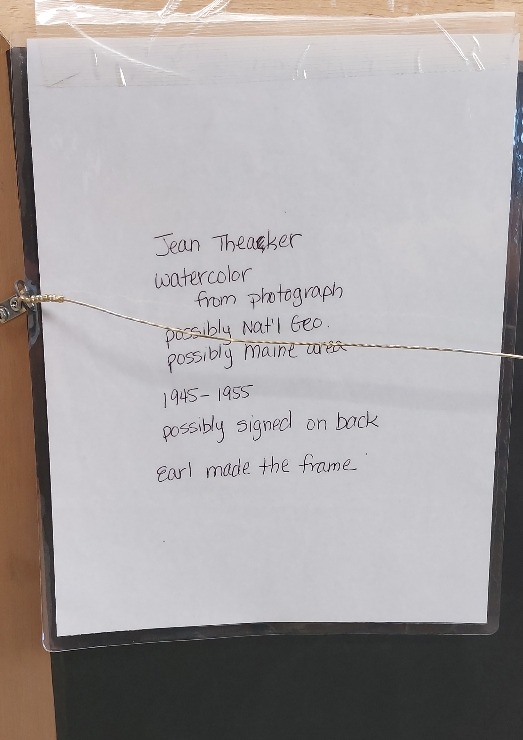 Jean Theacker
watercolor
from photograph
possibly Nat'l Geo.
possibly Maine area
1945-1955
possibly signed on back
Earl made the frame